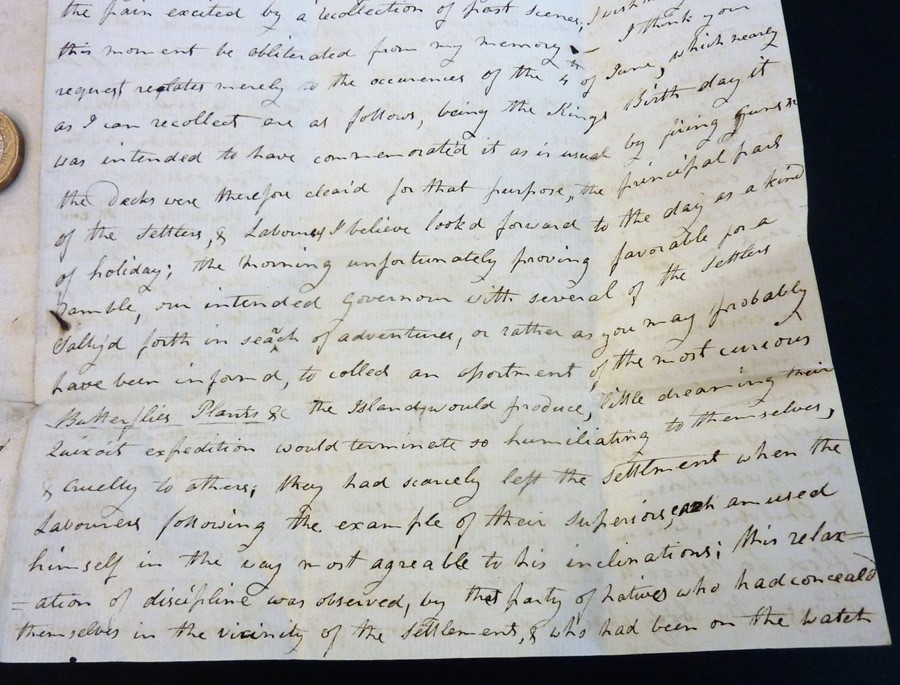 the pain excited by a recollection of past scenes, I wish
this moment be obliterated from my memory — I think your
request relates merely to the occurences of the 4th of June, which nearly
as I can recollect are as follows, being the Kings Birth day it
was intended to have commemorated it as is usual by firing Guns &
the Decks were therefore clear'd for that purpose, the principal part
of the Settlers, & Labourers I believe look'd forward to the day as a kind
of holiday; the morning unfortunately proving favorable for a
ramble, our intended Governour with several of the Settlers
Sally'd forth in seach of adventures, or rather as you may probably
have been inform'd, to collect an assortment of the most curious
Butterflies Plants &c the Island would produce, little dreaming their
Quixoit expedition would terminate so humiliating to themselves,
& Cruelty to others; they had scarcely left the Settlment when the
Labourers following the example of their Superiors, each amused
himself in the way most agreable to his inclinations; this relax=
=ation of discipline was observed, by that party of natives who had conceal'd
themselves in the vicinity of the Settlement, & who had been on the watch